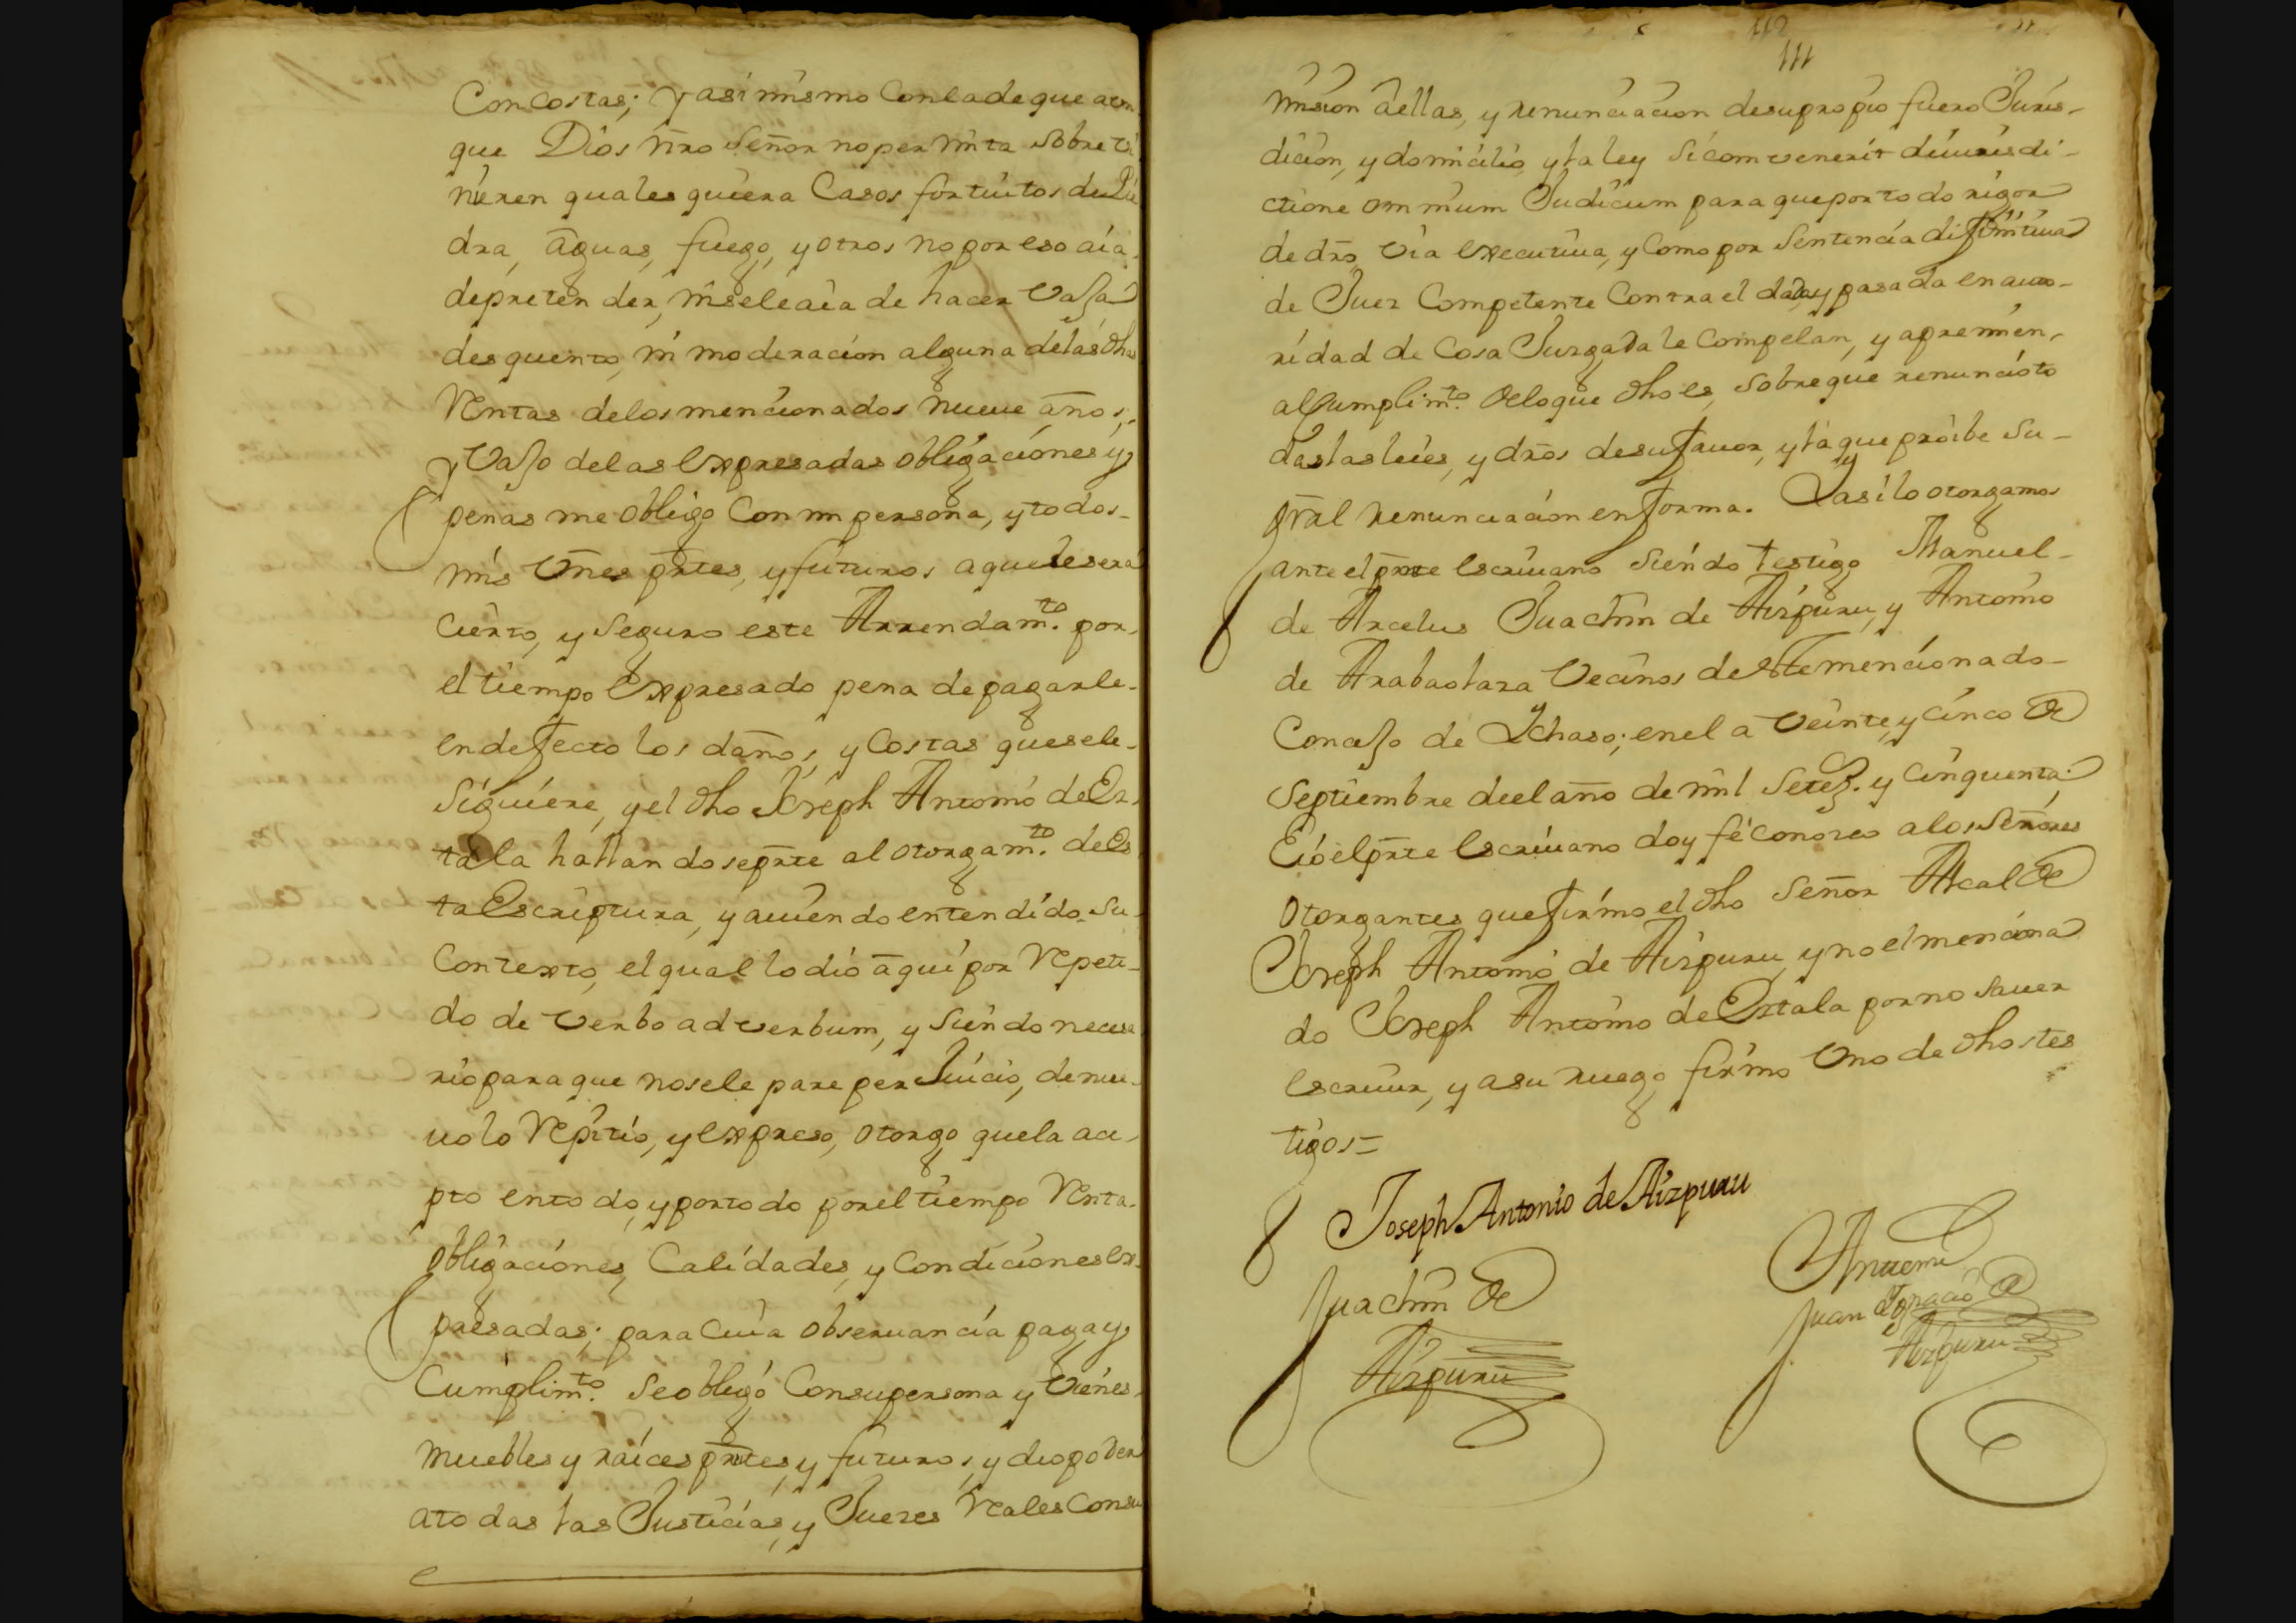 Con costas; y asi mismo con la de que aun
que Dios nr̃o Señor no permita sobre vi
nieren quales quiera Casos fortuitos de Pie
dra, aguas, fuego, y otros no por eso aia
de pretender, ni se le aia de hacer vaja
desquento, ni moderacion alguna de las dhas
Rentas de los mencionados nueve años,
y vajo de las expresadas obligaciones y
penas me obligo con mi persona, y todos
mis vñes prẽtes, y futuros a que le sera
cierto, y seguro este Arrendamto. por
el tiempo expresado pena de pagarle
en defecto los daños, y costas que se le
siguiere, y el dho Joseph Antonio de Er
tala hallandose prẽte al otorgamto. de es
ta Escriptura, y aviendo entendido su
Contexto, el qual lo dió aqui por Repeti
do de verbo ad verbum, y siendo necesa
rio para que no se le pare perjuicio, de nue
vo lo Repitió, y expreso, otorgo que la ace
pto en todo, y por todo por el tiempo Renta
obligaciones, Calidades, y Condiciones ex
presadas; para cuia observancia paga y
Cumplimto. se obligó con su persona y vienes
muebles y raices prẽtes, y futuros, y dio poder
a todas las Justicias, y Jueces Reales con su
112
111
mision a ellas, y renunciacion de su propio fuero Juris-
dicion, y domicilio, y la ley si comvenerit de iurisdi-
ctione omnium Judicum para que por todo rigor
de dr̃o, via executiva, y como por Sentencia difinitiva
de Juez Competente contra el dada, y pasada en auto-
ridad de cosa Juzgada le compelan, y apremien,
al cumplimto. de lo que dho es, sobre que renunció to
das las leies, y dr̃os de su favor, y la que proibe su
gr̃al renunciacion en forma. Y asi lo otorgamos
ante el prẽte escrivano siendo testigo Manuel
de Arcelus Juachin de Aizpuru, y Antonio
de Arabaolaza vecinos de este mencionado
Concejo de Ychaso; en el a veinte, y cinco de
Septiembre de el año de mil Setez. y cinquenta;
E ió el prẽte escrivano doy fé conozco a los Señores
otorgantes que firmo el dho Señor Alcalde
Joseph Antonio de Aizpuru, y no el menciona
do Joseph Antonio de Ertala por no saver
escrivir, y a su ruego firmo uno de dhos tes
tigos=
Joseph Antonio de Aizpuru
Juachin de
Aizpuru
Ante mi
Juan Ignacio de
Aizpuru